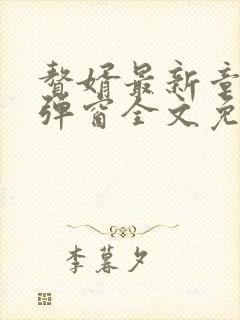 赘婿最新章
弹窗全文免
李暮夕